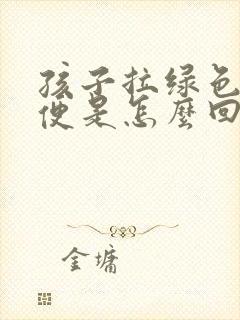 孩子拉绿色
便是怎麼回
金墉